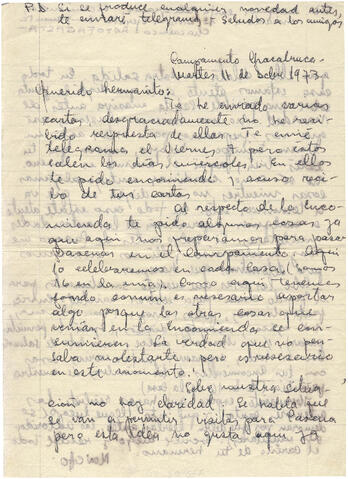 P.D. Si se produce cualquier novedad antes,
te enviaré telegrama. Saludos a los amigos
Campamento Chacabuco
Martes 11 de Dcbre 1973.
Querido hermanito:
Te he enviado varias
cartas desgraciadamente no he reci-
bido respuesta de ellas. Te envié
telegrama el Viernes 7 pero estos
salen los días miercoles. En ellos
te pido encomienda y acuso reci-
bo de tus cartas.
Al respecto de la enco-
mienda te pido algunas cosas ya
que aqui nos preparamos para pasar
Pascuas en el Campamento. Aquí
lo celebraremos en cada Casa (somos
16 en la mia). Como aqui tenemos
fondo común es necesario aportar
algo porque las otras cosas que
venían en la Encomienda se con-
sumieron. La verdad que no pen-
saba molestarte pero es necesario
en este momento.
Sobre nuestra situa
ción no hay claridad. Se habla que
se van a permitir visitas para Pascua
pero esta idea no gusta aqui ya